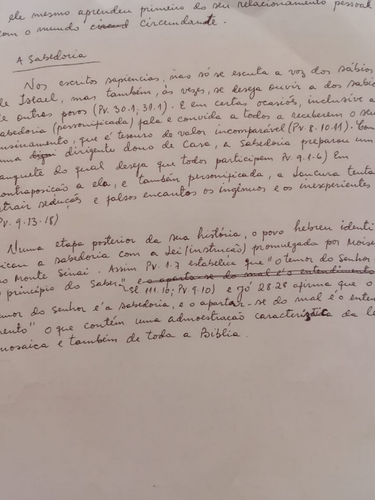 ele mesmo aprendeu primeiro do seu relacionamento pessoal
com o mundo circund circundante.
A Sabedoria
Nos escritos sapienciais, mas só se escuta a voz dos sábios
de Israel, mas também, às vezes, se deseja ouvir a dos sabio
de outras povos (Pv. 30.1; 31.1). E em certas ocasiões, inclusive a
sabedoria (personificada) fala e convida a todos a receberem o seu
ensinamento, que é tesouro de valor incomparável (Pv 8.10.11). Com
uma dirigente dona de casa, a Sabedoria preparou um
banquete do qual deseja que todos participem Pv 9.1-6) Em
contraposição a ela, e também personificada, a loucura tenta
atrair seduções e falsos encantos os ingênuos e os inexperientes
Pv. 9.13.18)
Numa etapa posterior da sua história, o povo hebreu identi
ficou a sabedoria com a Lei (instrução) promulgada por Moisés
no Monte Sinai. Assim Pv 1.7 estabelece que "O temor do Senhor
o princípio do saber" e o aparta-se do mal é o entendimento
Sl 111.10; Pv 9.10) e Jó 28.28 afirma que o
temor do Senhor é a sabedoria, e o apartar-se do mal é o enten
mento" O que contém uma admoestração característica da le
mosaica e também de toda a Bíblia.